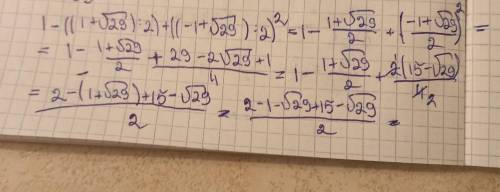 1-((1+√29):2)+((-1+√29):2)²=1-\frac{1+√29}{2}+(\frac{-1+√29}{2})²=
=1-\frac{1+√29}{2}+\frac{29-2√29+1}{4}=1-\frac{1+√29}{2}+\frac{2(15-√29)}{4 2}
=\frac{2-(1+√29)+15-√29}{2}=\frac{2-1-√29+15-√29}{2}=